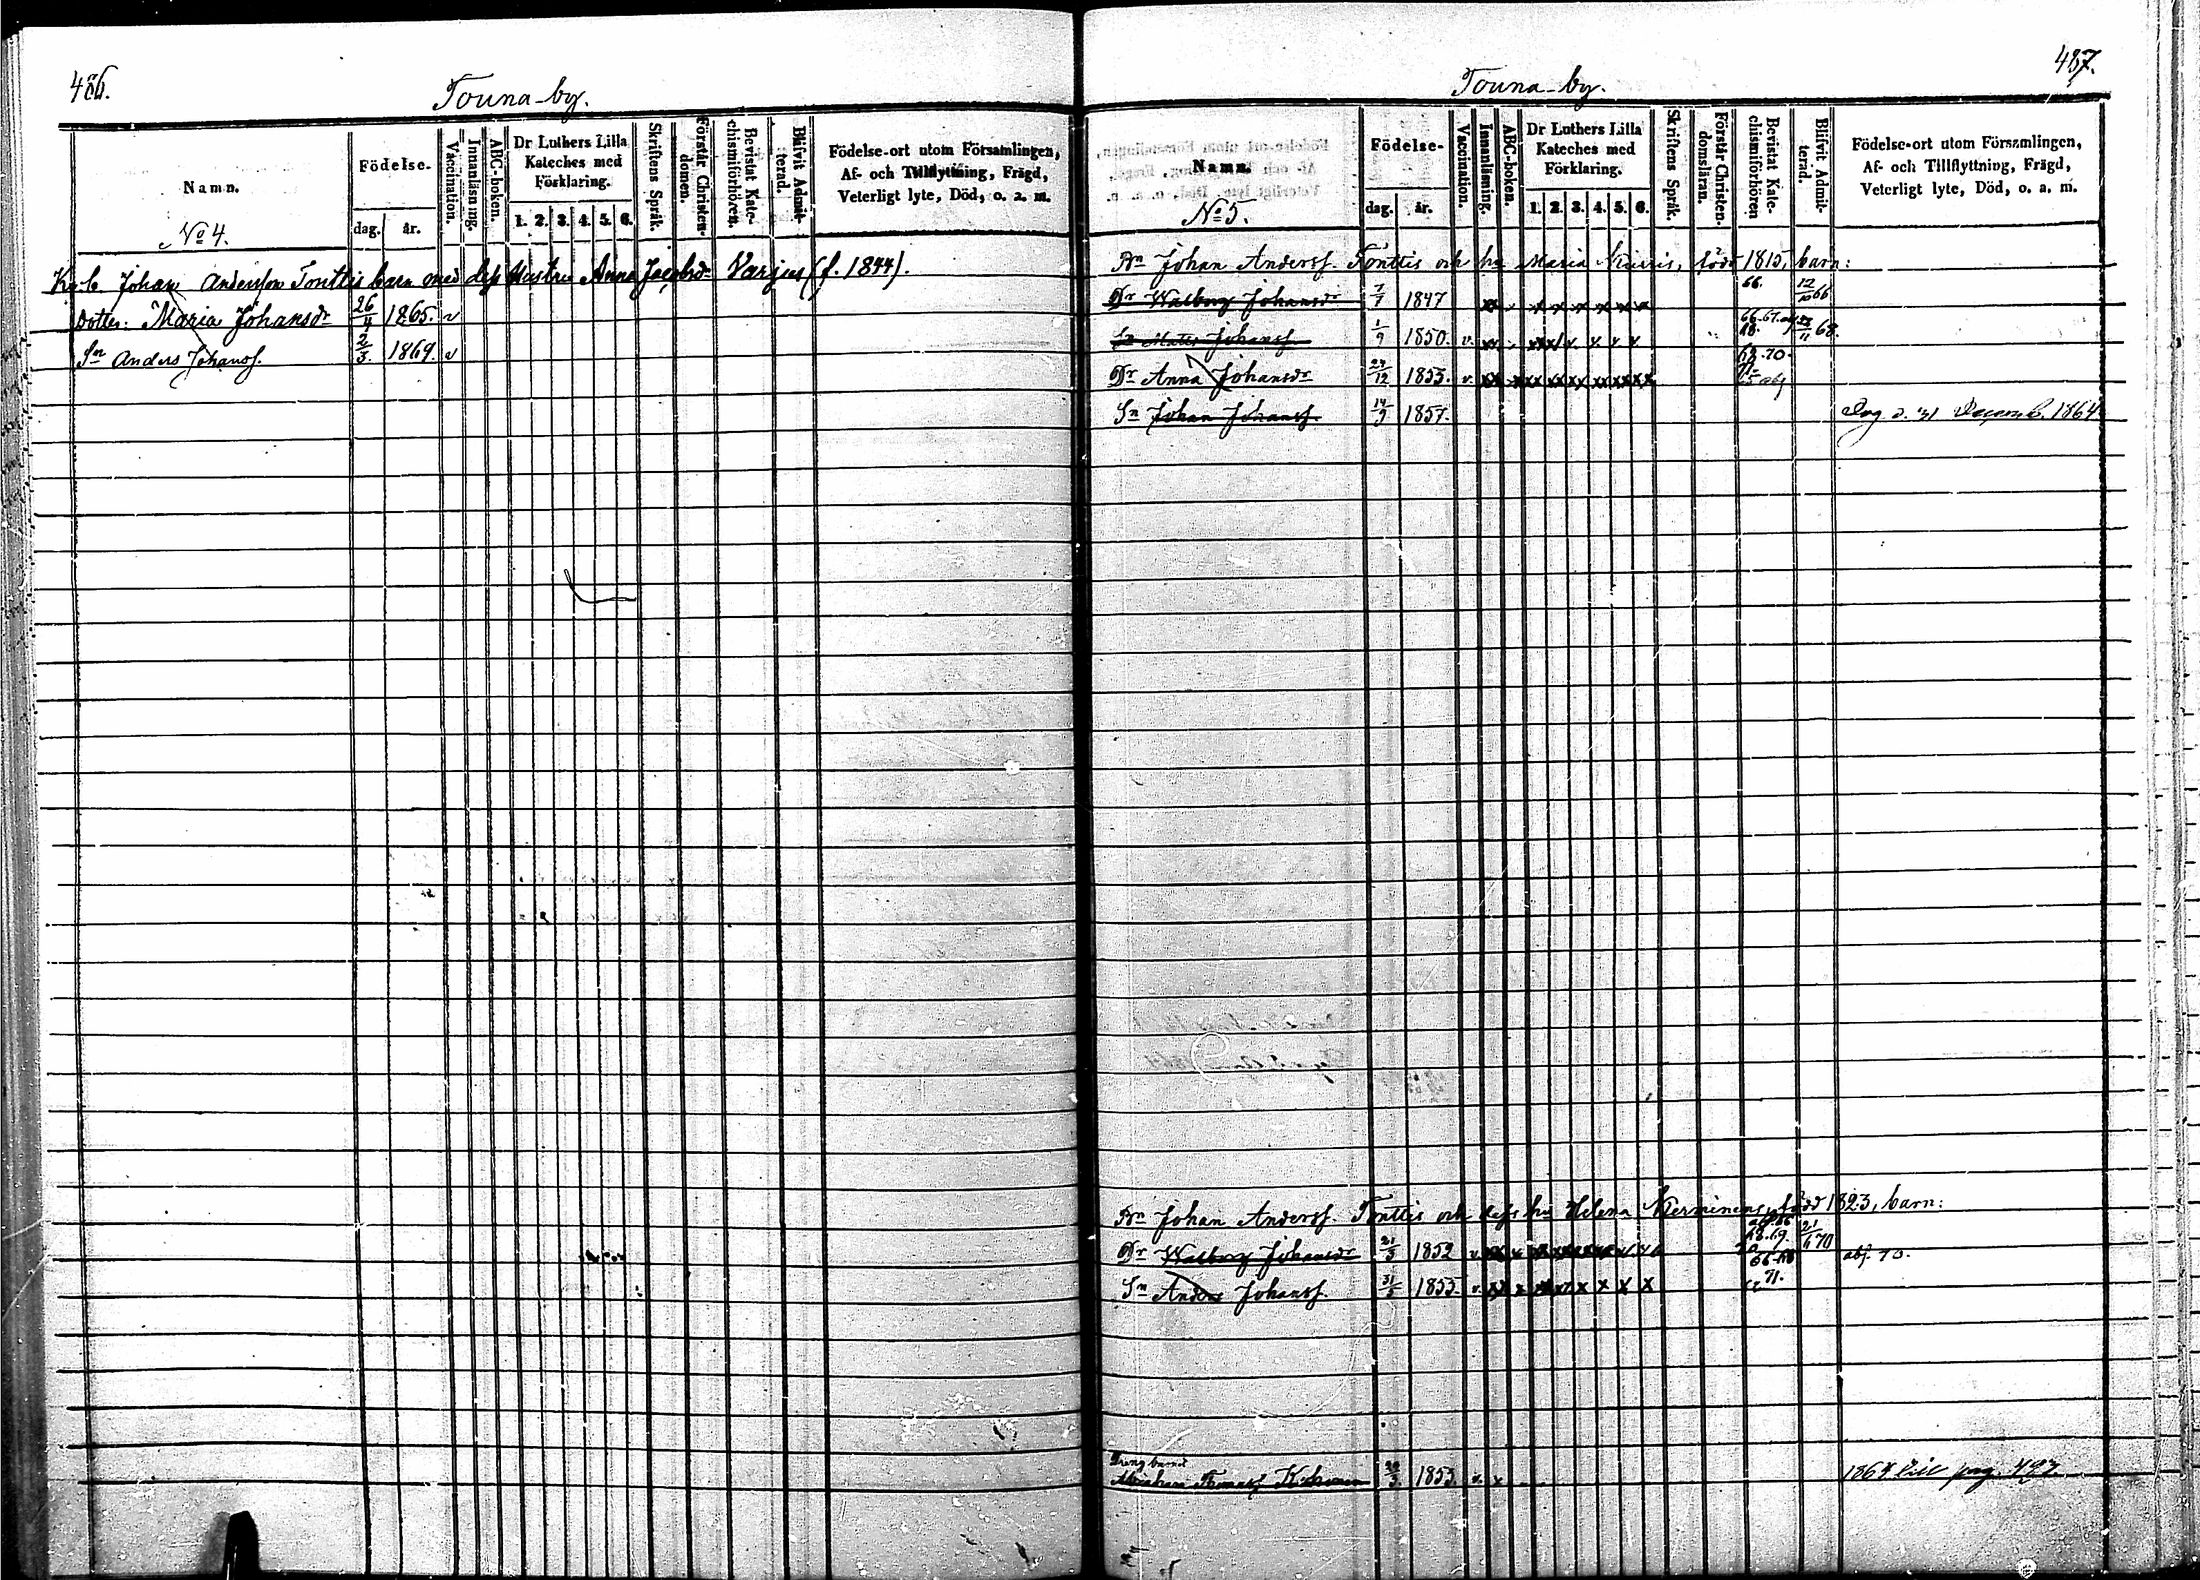 486.
Touna-by.
Namn.
Födelse-
dag. år.
Vaccination.
Innanläsning.
ABC-boken.
Dr Luthers Lilla
Kateches med
Förklaring.
1. 2. 3. 4. 5. 6.
Skriftens Språk.
Förstår Christen-
domen.
Bevistat Kate-
chismiförhören.
Blifvit Admit-
terad.
Födelse-ort utom Församlingen,
Af- och Tillflyttning, Frägd,
Veterligt lyte, Död, o. a. m.
No 4.
Johan Andersson Tonttis barn med dess Hustru Anna Jacobsdr Varjus (f. 1844).
Dotter: Maria Johansdr 26/4 1865. v
Sn Anders Johanss. 2/3 1869. v
487.
Touna-by.
Namn.
Födelse-
dag. år.
Vaccination.
Innanläsning.
ABC-boken.
Dr Luthers Lilla
Kateches med
Förklaring.
1. 2. 3. 4. 5. 6.
Skriftens Språk.
Förstår Christen-
domsläran.
Bevistat Kate-
chismiförhören
Blifvit Admit-
terad.
Födelse-ort utom Församlingen,
Af- och Tillflyttning, Frägd,
Veterligt lyte, Död, o. a. m.
No 5.
Bn Johan Anderss. Tonttis och hu Maria född 1815, barn:
Dr Walborg Johansdr 7/7 1847 66. 12/10 66
Sn Matts Johanss. 1/9 1850. v. 68.
Dr Anna Johansdr 27/12 1853. v.
Sn Johan Johanss. 14/9 1857. Dog d. 31 Decemb. 1864
Bn Johan Anderss. Tonttis och dess hu Helena född 1823, barn:
Dr Walborg Johansdr 21/3 1852 v. 68.69. 21/6 70 abs. 70.
Sn Anders Johanss. 31/5 1855. v. 71.
Abraham 1853. v. x 1864 till pag. 497